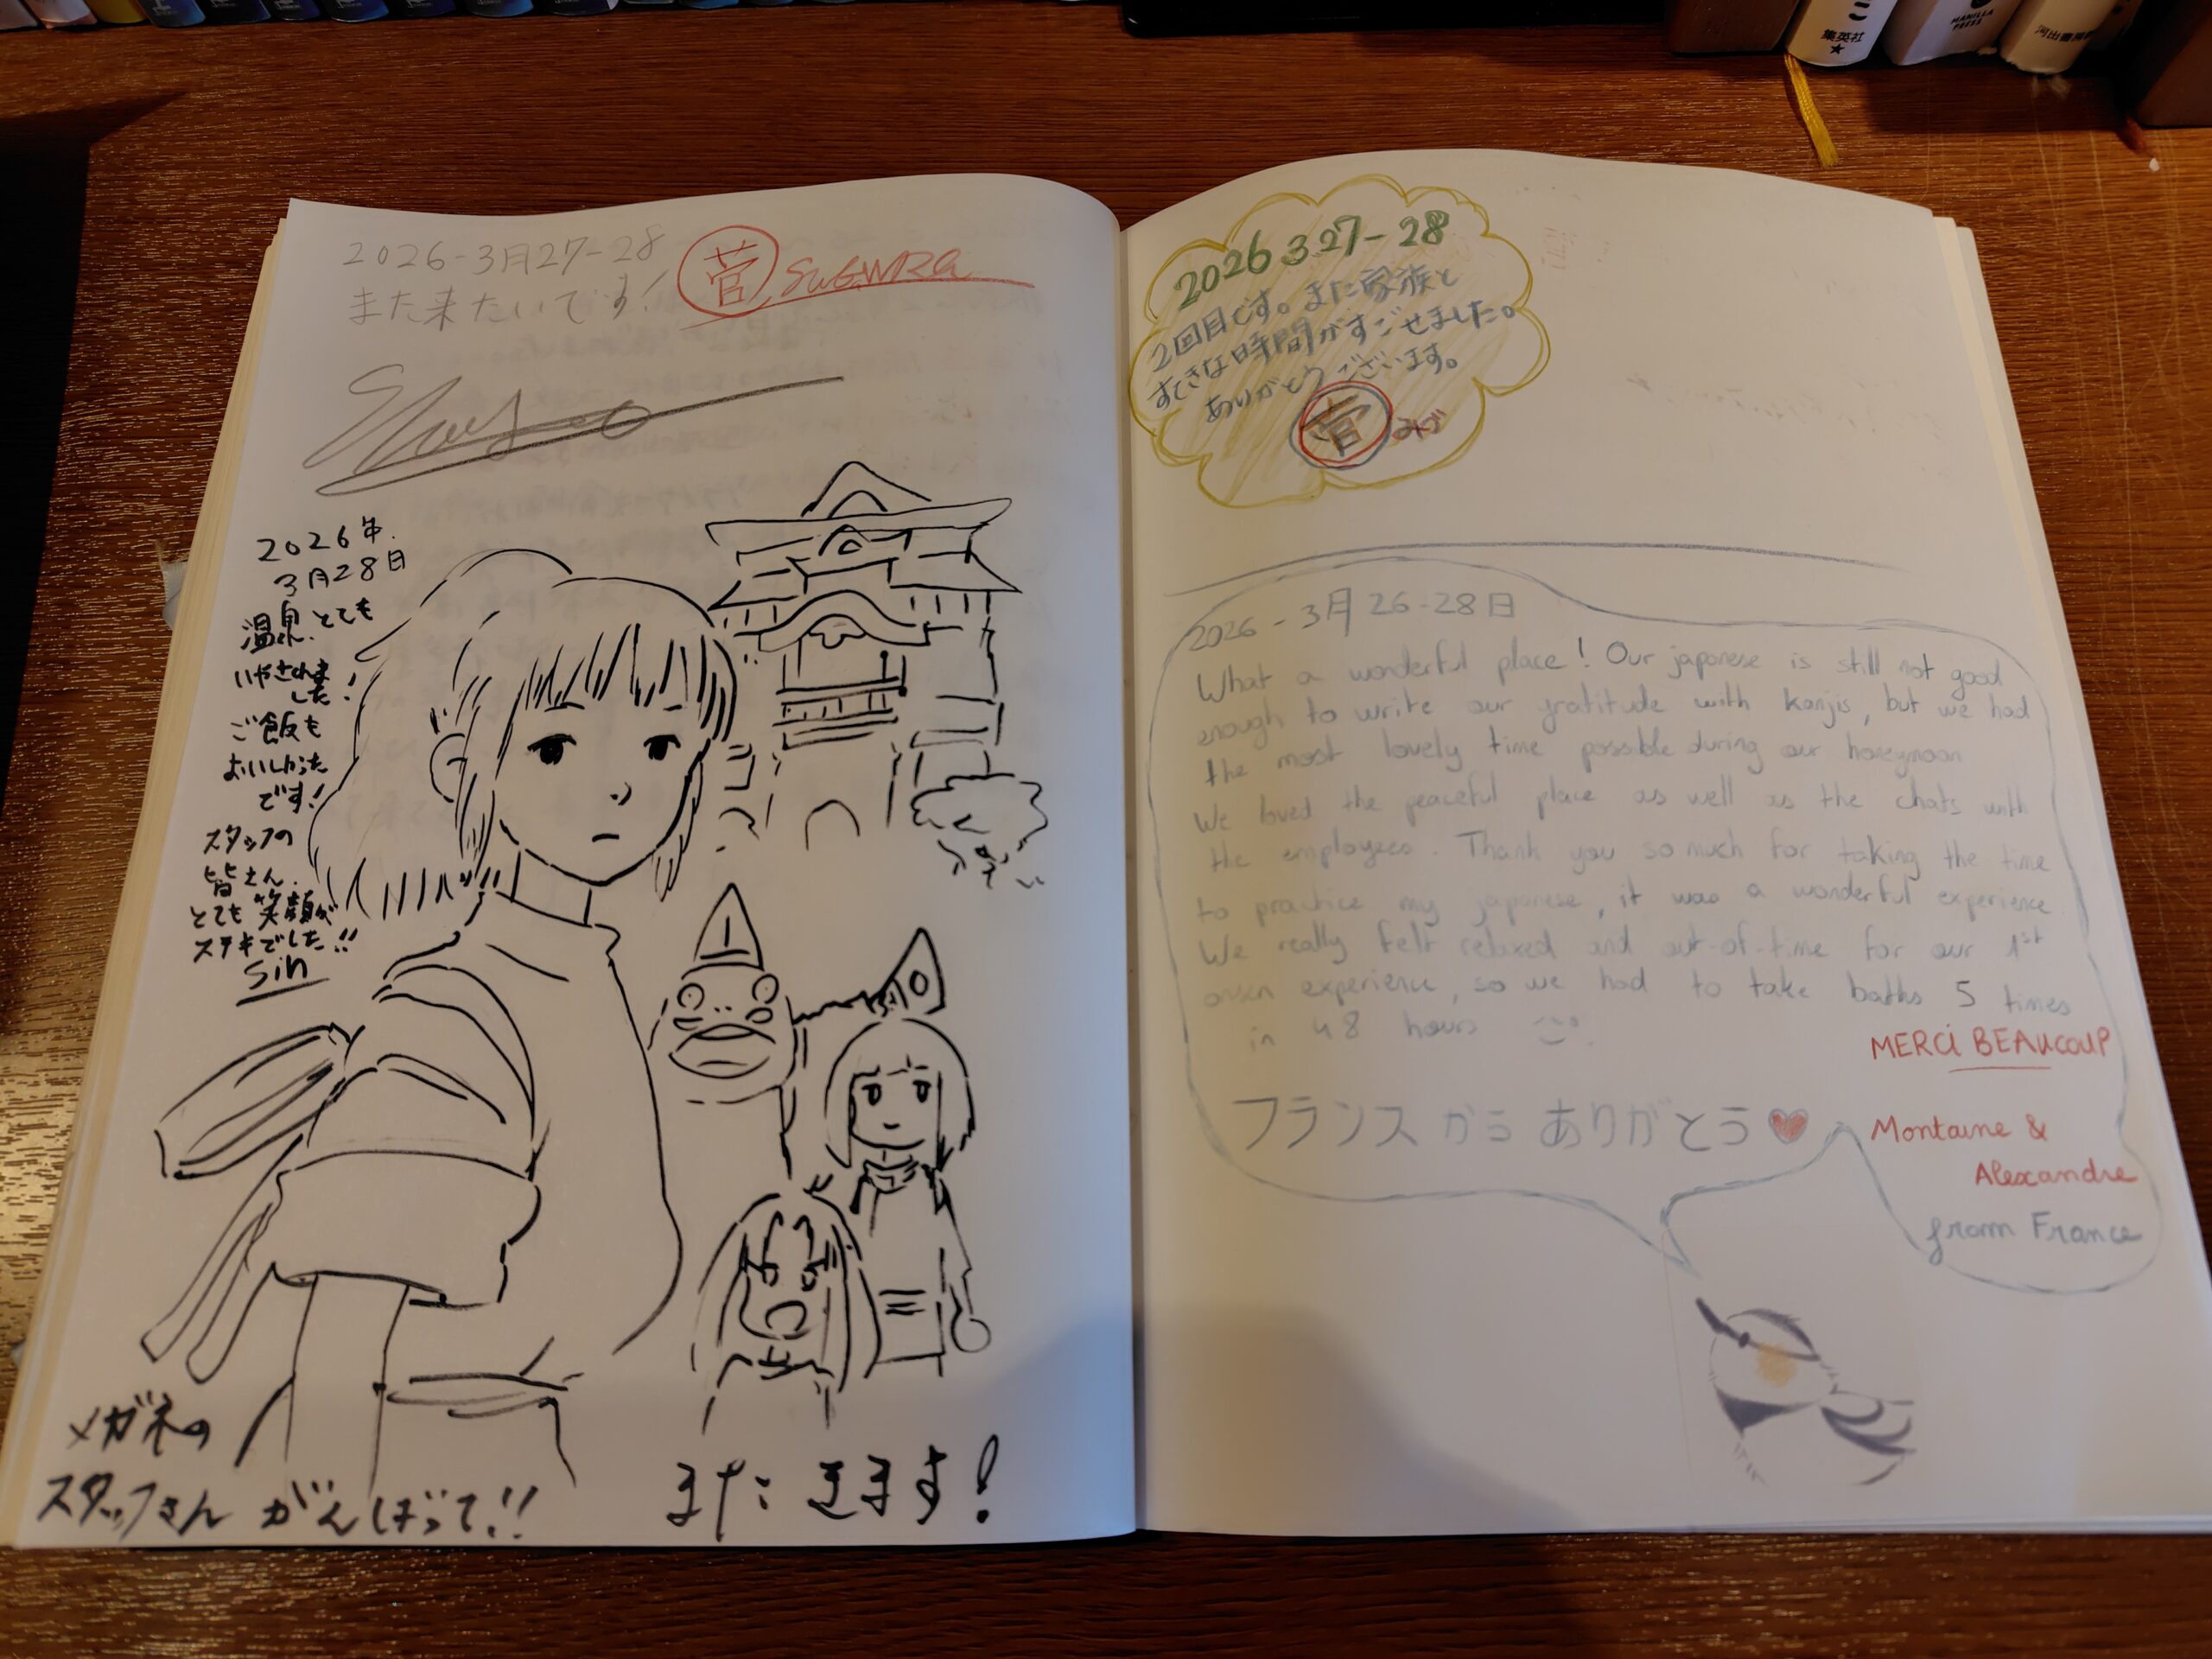 2026-3月27-28
また来たいです!
菅 SUGAWARA
2026年
3月28日
温泉、とても
いやされま
した!
ご飯も
おいしかった
です!
スタッフの
皆さん、
とても笑顔が
ステキでした!!
Sin
メガネの
スタッフさん がんばって!!
また きます!
2026 3.27-28
2回目です。また家族と
すてきな時間がすごせました。
ありがとうございます。
菅
2026-3月26-28日
What a wonderful place! Our japonese is still not good
enough to write our gratitude with kanjis, but we had
the most lovely time possible during our honeymoon
We loved the peaceful place as well as the chats with
the employees. Thank you so much for taking the time
to practice my japonese, it was a wonderful experience
We really felt relaxed and out-of-time for our 1st
onsen experience, so we had to take baths 5 times
in 48 hours
MERCI BEAUCOUP
フランス から ありがとう
Montaine &
Alexandre
from France
集英社
MANILLA
PRESS